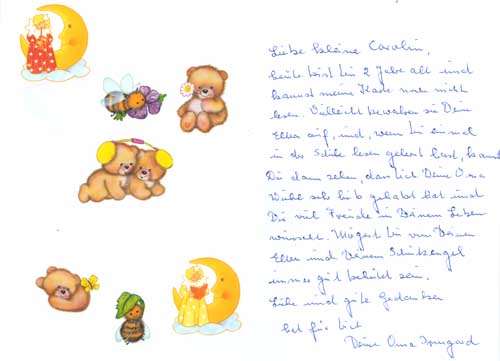 Liebe kleine Carolin,
heute bist Du 2 Jahre alt und
kannst meine Karte noch nicht
lesen. Vielleicht bewahren sie Deine
Eltern auf, und, wenn Du einmal
in der Schule lesen gelernt hast, kannst
Du dann sehen, dass Dich Deine Oma
sehr lieb gehabt hat und
Dir viel Freude in Deinem Leben
wünscht. Mögest Du von Deinen
Eltern und Deinem Schutzengel
immer gut behütet sein.
Liebe und gute Gedanken
hat für Dich
Deine Oma Irmgard